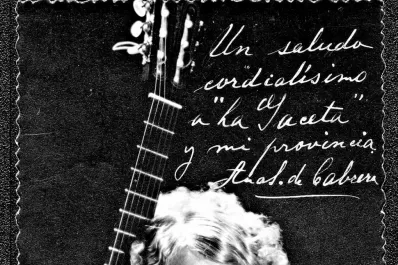 Un saludo
cordialísimo
a "La Gaceta"
y mi provincia.
Anas. de Cabrera